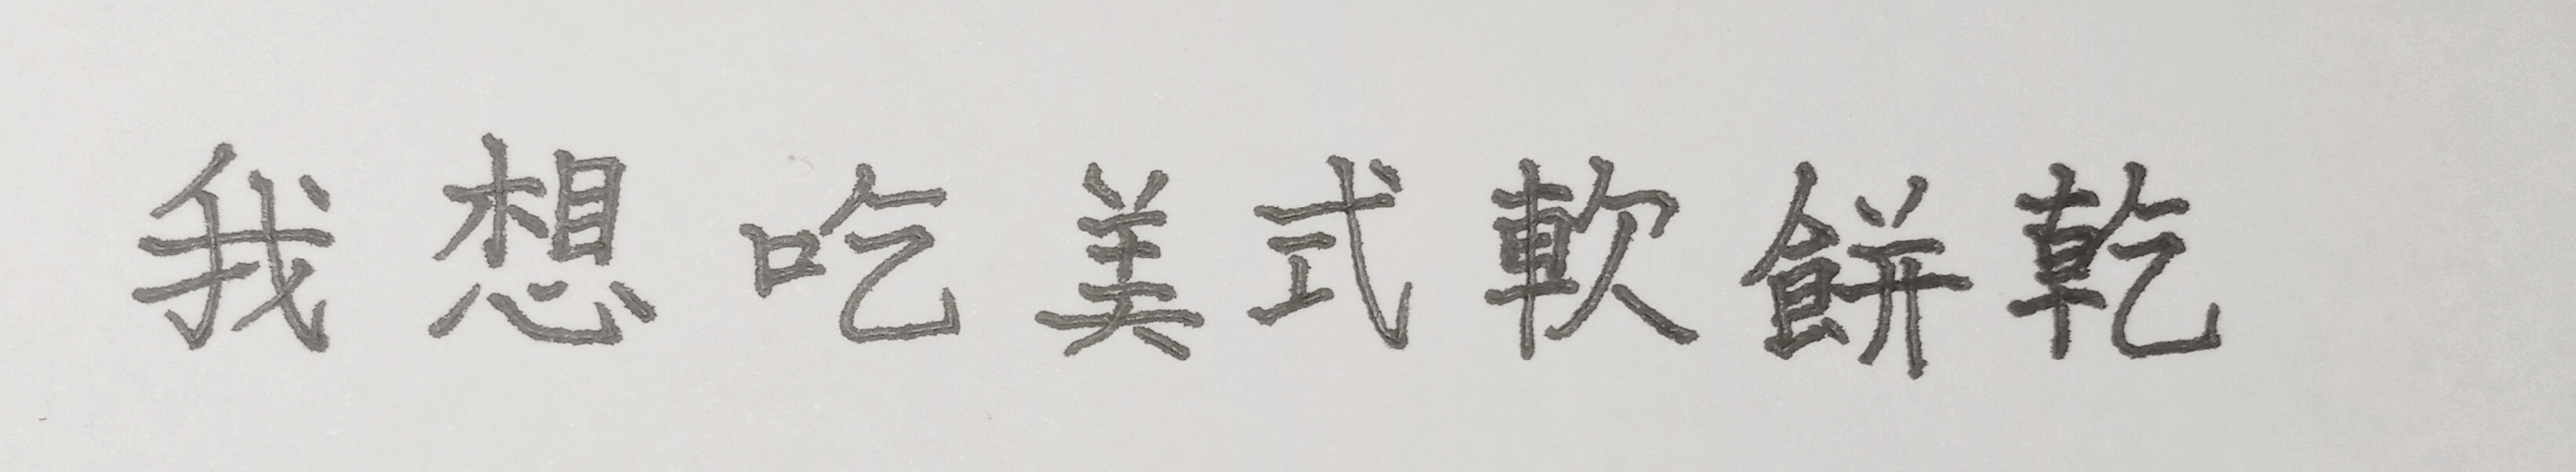 我想吃美式軟餅乾